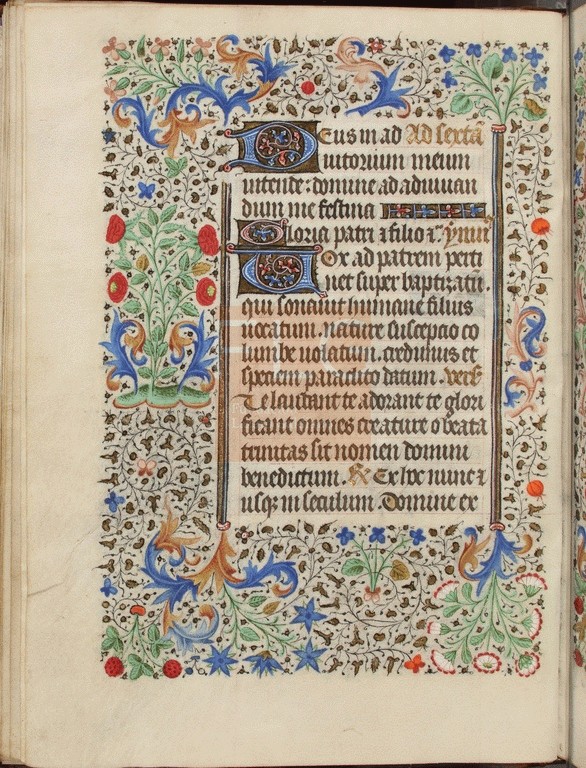 Deus in ad Ad sextā
iutorium meum
intende : domine ad adiuuan
dum me festina
Gloria patri & filio &c̄. ymnꝰ
Vox ad patrem perti
net super baptizatū .
qui sonauit humane filius
uocatum . nature suscepcio co
lumbe uolatum . credimus et
speciem paraclito datum . vers̄
Te laudant te adorant te glori
ficant omnes creature o beata
trinitas sit nomen domini
benedictum . ℞ Ex hoc nunc ⁊
usqꝫ in seculum . Domine ex